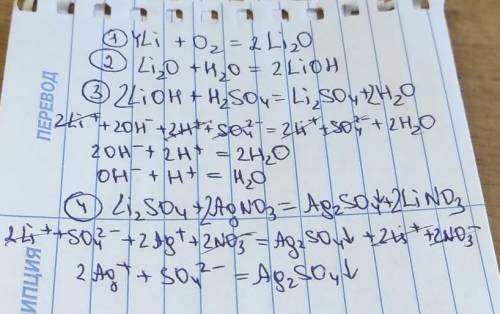 ① 4Li + O₂ = 2Li₂O
② Li₂O + H₂O = 2LiOH
③ 2LiOH + H₂SO₄ = Li₂SO₄ + 2H₂O
2Li⁺ + 2OH⁻ + 2H⁺ + SO₄²⁻ = 2Li⁺ + SO₄²⁻ + 2H₂O
2OH⁻ + 2H⁺ = 2H₂O
OH⁻ + H⁺ = H₂O
④ Li₂SO₄ + 2AgNO₃ = Ag₂SO₄↓ + 2LiNO₃
2Li⁺ + SO₄²⁻ + 2Ag⁺ + 2NO₃⁻ = Ag₂SO₄↓ + 2Li⁺ + 2NO₃⁻
2Ag⁺ + SO₄²⁻ = Ag₂SO₄↓
ПЕРЕВОД
ИПЦИЯ